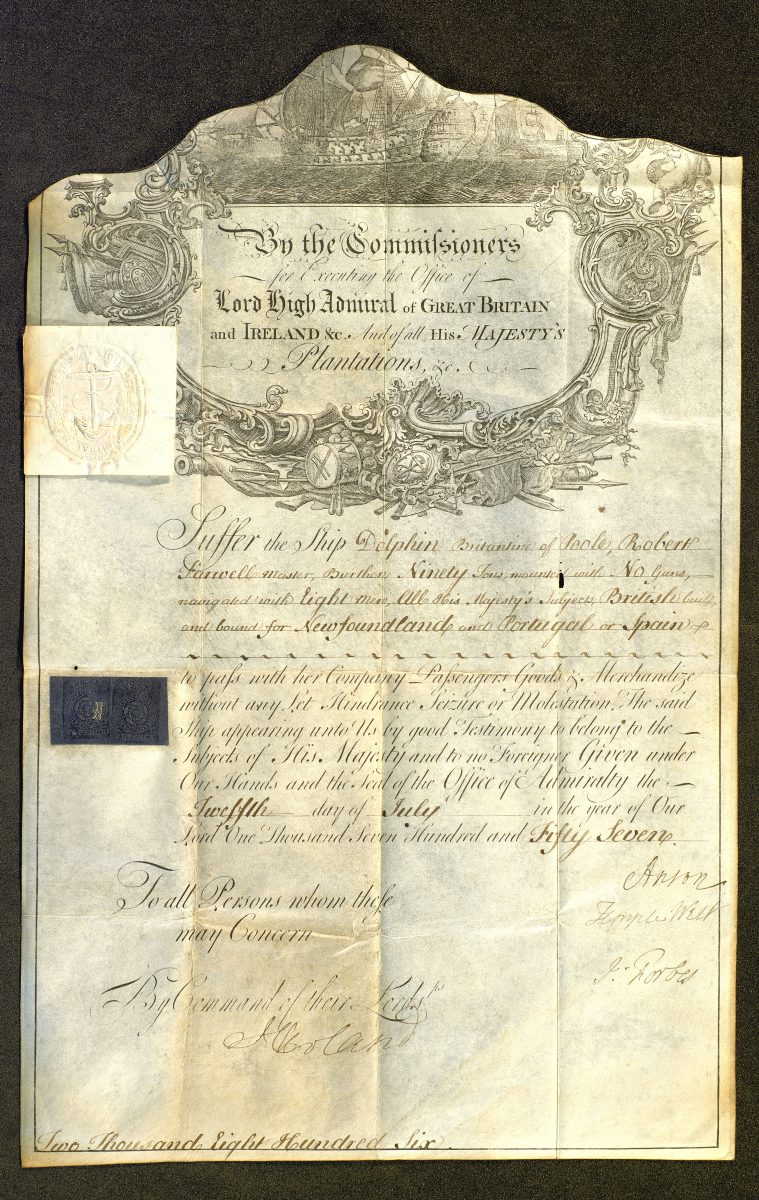 By the Commissioners
for Executing the Office of
Lord High Admiral of GREAT BRITAIN
and IRELAND &c. And of all HIS MAJESTY'S
Plantations, &c.
Suffer the Ship Dolphin Britantine of Poole, Robert
Farwell Master, Burthen Ninety Tons, mounted with No Guns,
navigated with Eight Men, All His Majesty's Subjects, British built
and bound for Newfoundland and Portugal or Spain
to pass with her Company Passengers Goods & Merchandize
without any Let Hindrance Seizure or Molestation, The said
Ship appearing unto Us by good Testimony to belong to the
Subjects of His Majesty and to no Foreigner Given under
Our Hands and the Seal of the Office of Admiralty the
Twelfth day of July in the year of Our
Lord One Thousand Seven Hundred and Fifty Seven.
Anson
Temple West
Js. Forbes
To all Persons whom these
may Concern
By Command of their Lordsps
Two Thousand Eight Hundred Six.